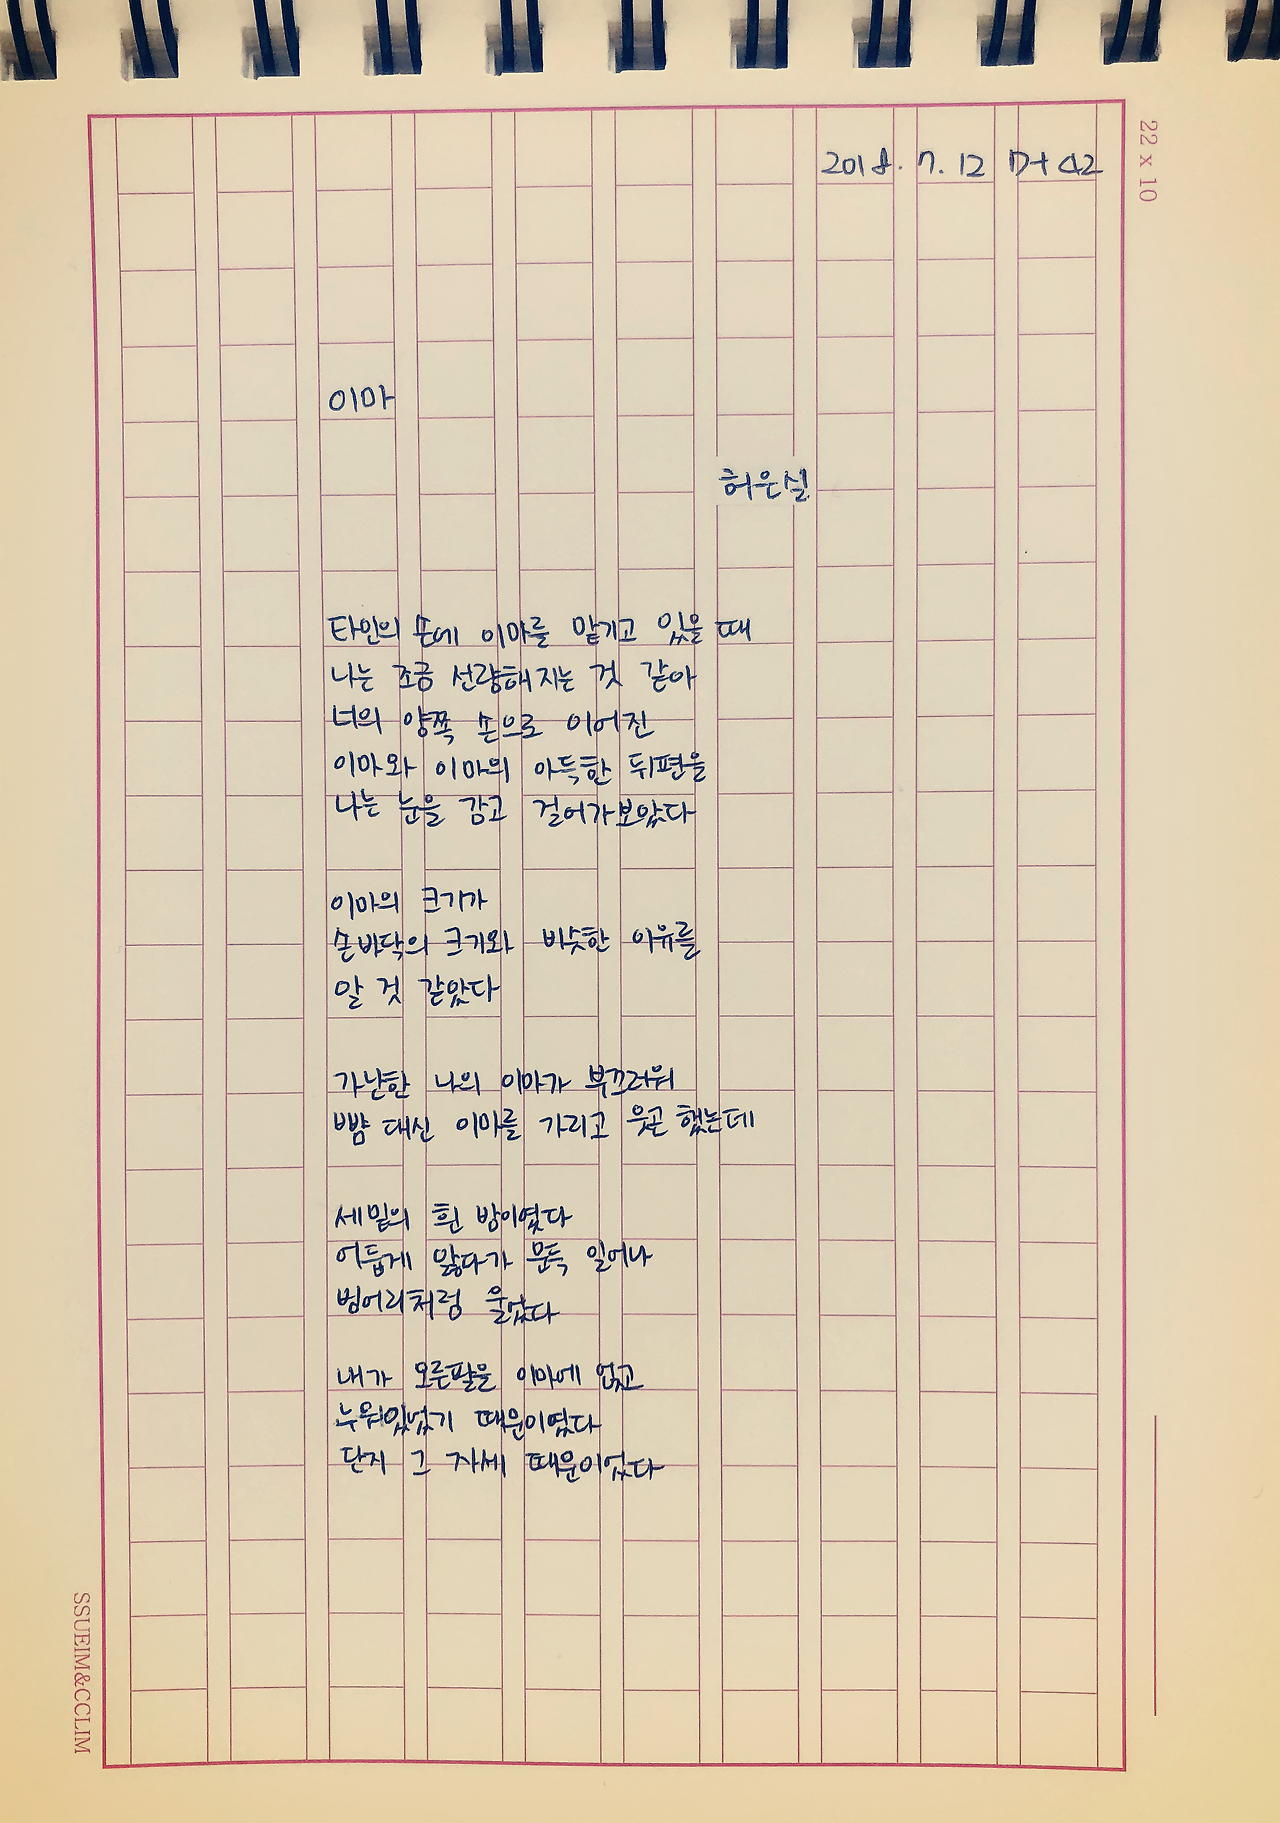 22 x 10
2018. 7. 12 D+42
이마
허은실
타인의 손에 이마를 맡기고 있을 때
나는 조금 선량해지는 것 같아
너의 양쪽 손으로 이어진
이마와 이마의 아득한 뒤편을
나는 눈을 감고 걸어가보았다
이마의 크기가
손바닥의 크기와 비슷한 이유를
알 것 같았다
가난한 나의 이마가 부끄러워
뺨 대신 이마를 가리고 웃곤 했는데
세밑의 흰 밤이었다
어둡게 앓다가 문득 일어나
벙어리처럼 울었다
내가 오른팔을 이마에 얹고
누워있었기 때문이었다
단지 그 자세 때문이었다
SSUEIM&CCLIM